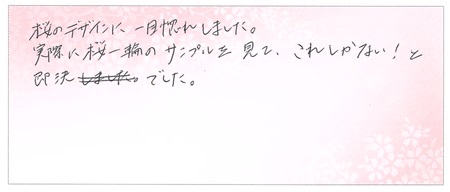 桜のデザインに一目惚れしました。
実際に桜一輪のサンプルを見て、これしかない！と
即決でした。